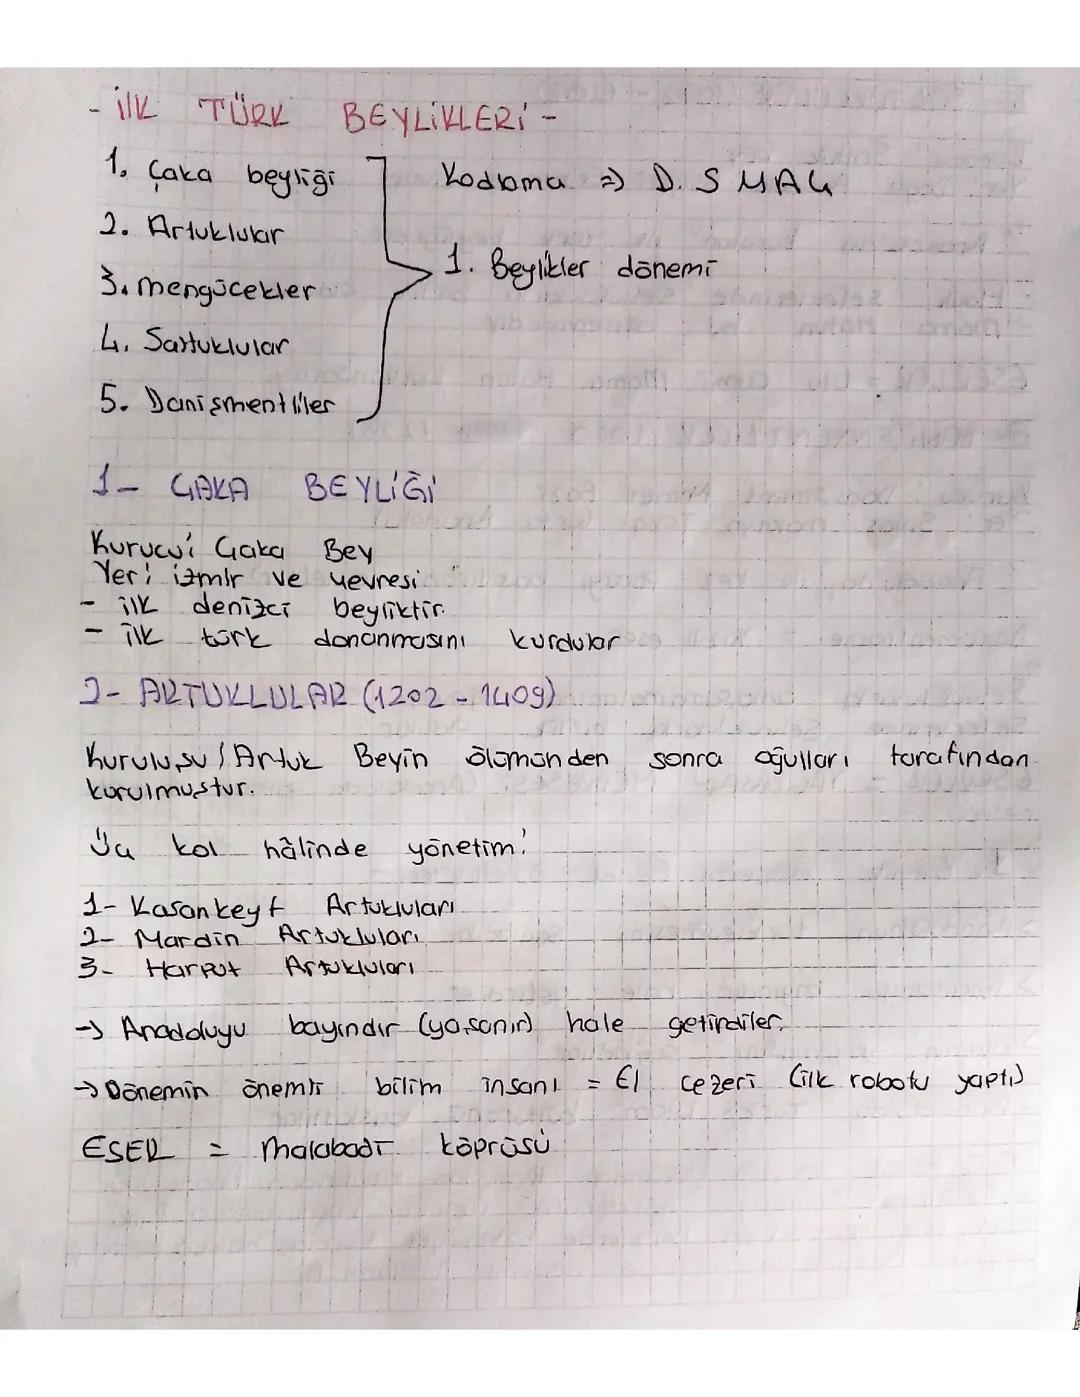 - İLK TÜRK BEYLİKLERİ -
1. Çaka beyliği
2. Artuklular
3. mengücekler
4. Saltuklular
5. Danişmentliler
Kodlama => D. S M A Ç
1. Beylikler dönemi
1- ÇAKA BEYLİĞİ
Kurucu: Çaka Bey
Yer: izmir ve çevresi
- ilk denizci beyliktir.
- ilk türk donanmasını kurdular
2- ARTUKLULAR (1202 - 1409)
Kuruluşu: Artuk Beyin ölümünden sonra oğulları tarafından
kurulmuştur.
Üç kol hâlinde yönetim:
1- Hasankeyf Artukluları
2- Mardin Artukluları
3- Harput Artukluları
-> Anadoluyu bayındır (yaşanır) hale getirdiler.
-> Dönemin önemli bilim insanı = El cezeri (ilk robotu yaptı)
ESER = Malabadi köprüsü